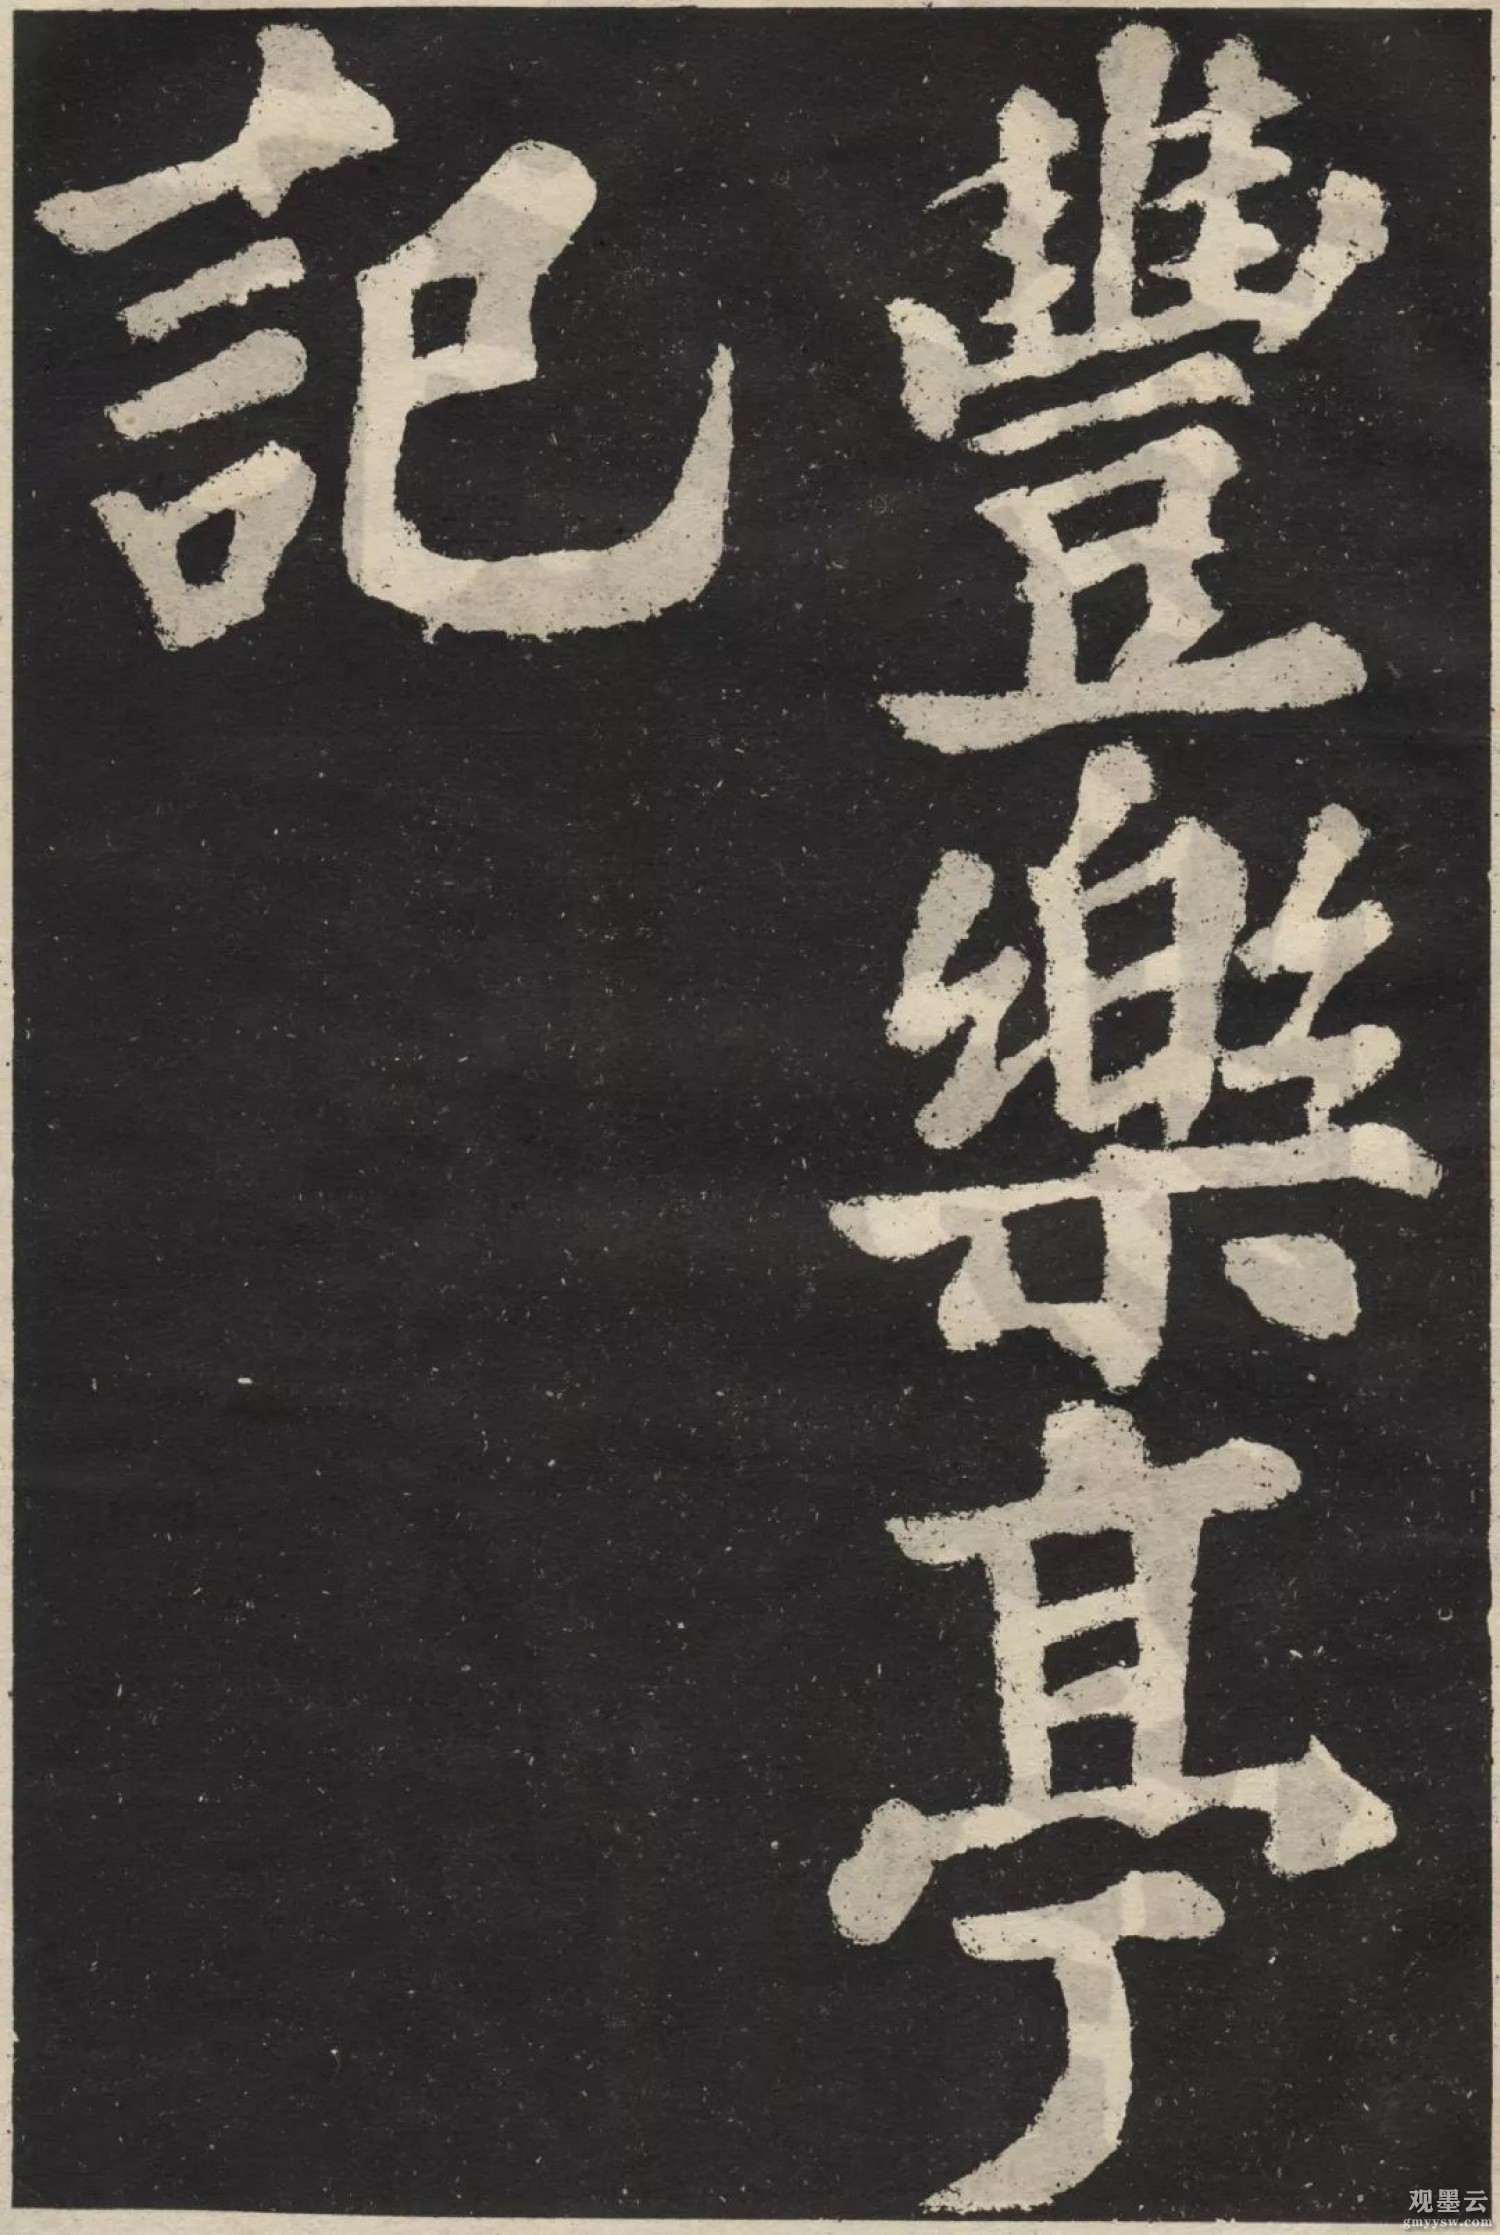 豐樂亭
記
观墨云
gmyysw.com